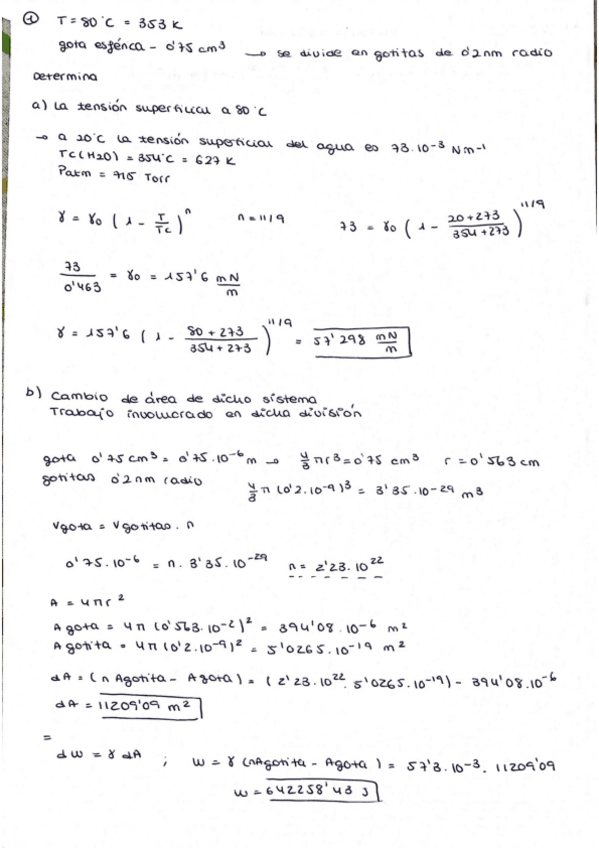 ① T = 80°C = 353 K
gota esférica - 0'75 cm³ → se divide en gotitas de 0'2nm radio
Determina
a) La tensión superficial a 80°C
→ a 20°C la tensión superficial del agua es 73·10⁻³ N·m⁻¹
Tc(H2O) = 354°C = 627 K
Patm = 715 Torr
γ = γ₀ (1 - T/Tc)ⁿ n = 11/9 73 = γ₀ (1 - (20+273)/(354+273))^11/9
73/0'463 = γ₀ = 157'6 mN/m
γ = 157'6 (1 - (80+273)/(354+273))^11/9 = 57'298 mN/m
b) Cambio de área de dicho sistema
Trabajo involucrado en dicha división
gota 0'75 cm³ = 0'75·10⁻⁶ m → 4/3 πr³ = 0'75 cm³ r = 0'563 cm
gotitas 0'2nm radio 4/3 π (0'2·10⁻⁹)³ = 3'35·10⁻²⁹ m³
Vgota = Vgotitas · n
0'75·10⁻⁶ = n · 3'35·10⁻²⁹ n = 2'23·10²²
A = 4πr²
A gota = 4π (0'563·10⁻²)² = 394'08·10⁻⁶ m²
A gotita = 4π (0'2·10⁻⁹)² = 5'0265·10⁻¹⁹ m²
dA = (n Agotita - Agota) = (2'23·10²² · 5'0265·10⁻¹⁹) - 394'08·10⁻⁶
dA = 11209'09 m²
=
dW = γ dA ; W = γ (nAgotita - Agota) = 57'3·10⁻³ · 11209'09
W = 642258'43 J